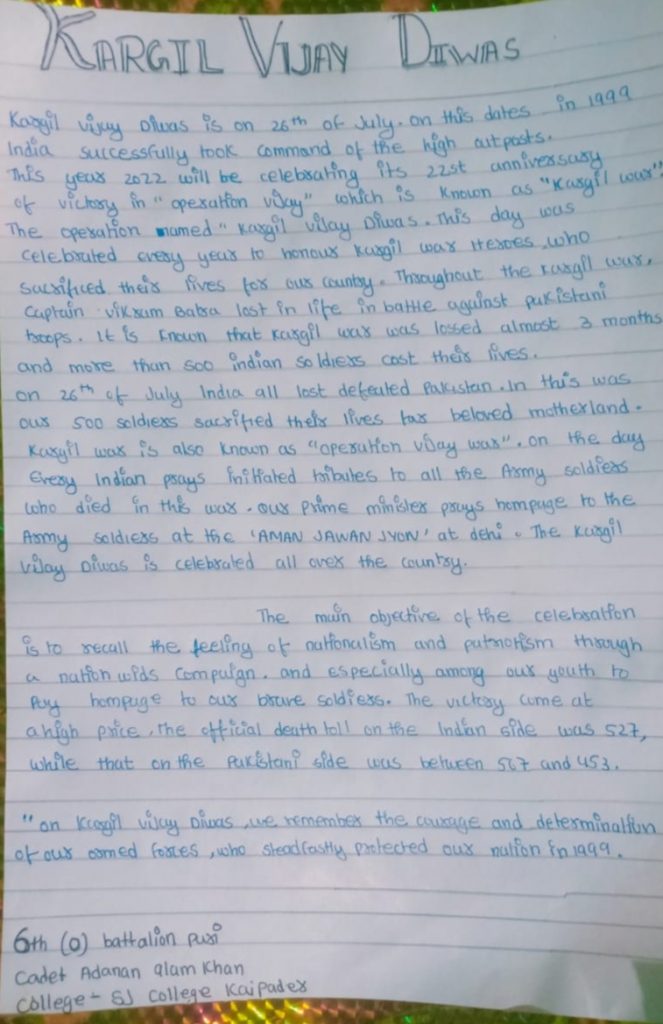 KARGIL VIJAY DIWAS
Kargil vijay Diwas is on 26th of July. on this dates in 1999
India successfully took command of the high outposts.
This year 2022 will be celebrating its 22st anniversary
of victory in "operation vijay" which is known as "Kargil war"
The operation named "Kargil vijay Diwas. This day was
celebrated every year to honour Kargil war Heroes, who
sacrificed their lives for our country. Throughout the kargil war,
Captain vikram Batra lost in life in battle against pukistani
troops. It is known that Kargil war was lossed almost 3 months
and more than 500 indian soldiers cost their lives.
on 26th of July India all lost defeated Pakistan. In this was
our 500 soldiers sacrified their lives for beloved motherland.
Kargil war is also known as "operation vijay war". on the day
Every Indian prays initiated tributes to all the Army soldiers
who died in this war. our prime minister prays hompage to the
Army soldiers at the 'AMAN JAWAN JYON' at dehi. The Kargil
vijay Diwas is celebrated all over the country.
The main objective of the celebration
is to recall the feeling of nationalism and patriotism through
a nation wids campaign. and especially among our youth to
Pay hompage to our brave soldiers. The victory came at
a high price, the official death toll on the Indian side was 527,
while that on the Pakistani side was between 567 and 453.
"on Kargil vijay Diwas, we remember the caurage and determination
of our armed forces, who steadfastly protected our nation in 1999.
6th (o) battalion puri
Cadet Adanan alam Khan
College - SJ College Kaipader